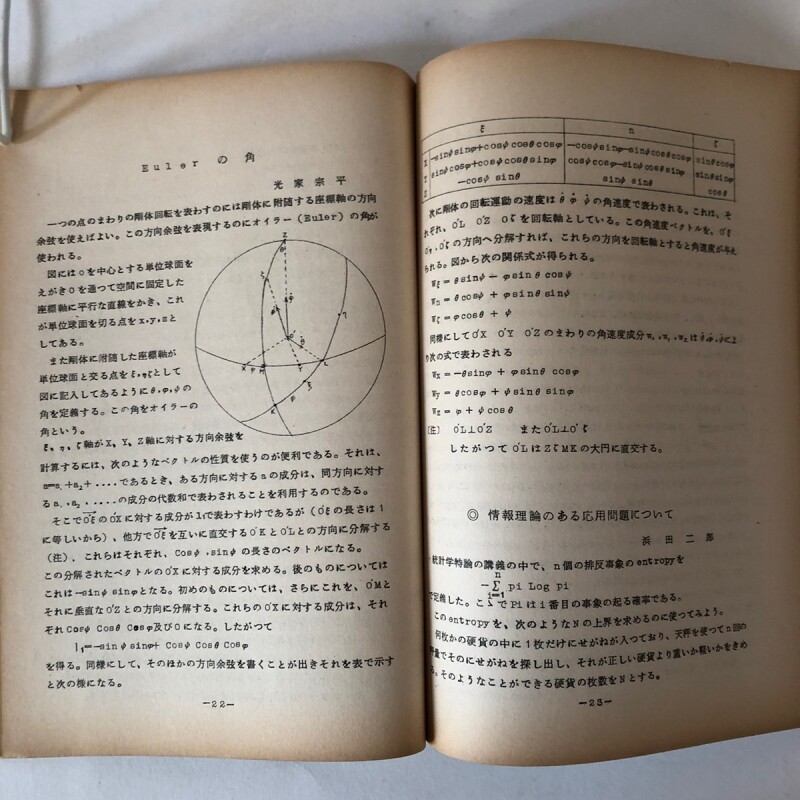 Eulerの角
光家宗平
一つの点のまわりの剛体回転を表わすのには剛体に附随する座標軸の方向
余弦を使えばよい。この方向余弦を表現するのにオイラー(Euler)の角が
使われる。
図にはOを中心とする単位球面を
えがきOを通つて空間に固定した
座標軸に平行な直線をかき、これ
が単位球面を切る点をx,y,zと
してある。
また剛体に附随した座標軸が
単位球面と交る点をξ,η,ζとして
図に記入してあるようにθ,φ,ψの
角を定義する。この角をオイラーの
角という。
ξ,η,ζ軸がX、Y、Z軸に対する方向余弦を
計算するには、次のようなベクトルの性質を使うのが便利である。それは、
a=a₁+a₂+....であるとき、ある方向に対するaの成分は、同方向に対す
るa₁,a₂....の成分の代数和で表わされることを利用するのである。
そこでO͞ξのO͞Xに対する成分がl₁で表わすわけであるが(O͞ξの長さは1
に等しいから)、他方でO͞ξを互いに直交するO͞KとO͞Lとの方向に分解する
(注)、これらはそれぞれ、Cosψ,sinψの長さのベクトルになる。
この分解されたベクトルのO͞Xに対する成分を求める。後のものについては
これは-sinψ sinφとなる。初めのものについては、さらにこれを、O͞Mと
それに垂直なO͞Zとの方向に分解する。これらのO͞Xに対する成分は、それ
ぞれCosψ Cosθ Cosφ及び0になる。したがつて
l₁=-sinψ sinφ+ Cosψ Cosθ Cosφ
を得る。同様にして、そのほかの方向余弦を書くことが出きそれを表で示す
と次の様になる。
-22-
ξ η ζ
X -sinψsinφ+cosψcosθcosφ -cosψsinφ-sinψcosθcosφ sinθcosφ
Y sinψcosφ+cosψcosθsinφ cosψcosφ-sinψcosθsinφ sinθsinφ
Z -cosψ sinθ sinψ sinθ cosθ
次に剛体の回転運動の速度はθ̇ φ̇ ψ̇の角速度で表わされる。これは、そ
れぞれ、O͞L O͞Z O͞ζを回転軸としている。この角速度ベクトルを、O͞ξ
O͞η,O͞ζの方向へ分解すれば、これらの方向を回転軸とすると角速度が与え
られる。図から次の関係式が得られる。
Wξ=θ̇sinψ - φ̇sinθ cosψ
Wη=θ̇cosψ + φ̇sinθ sinψ
Wζ=φ̇cosθ + ψ̇
同様にしてO͞X O͞Y O͞Zのまわりの角速度成分wₓ,wᵧ,w_zはθ̇,φ̇,ψ̇によ
り次の式で表わされる
Wx=-θ̇sinφ + ψ̇sinθ cosφ
Wy=θ̇cosφ + ψ̇sinθ sinφ
Wz=φ̇+ψ̇cosθ
(注) O͞L⊥O͞Z またO͞L⊥O͞ζ
したがつてO͞LはZζMKの大円に直交する。
◎ 情報理論のある応用問題について
浜田二郎
統計学特論の講義の中で、n個の排反事象のentropyを
-Σ pi Log pi
n
i=1
で定義した。ここでPiはi番目の事象の起る確率である。
このentropyを、次のようなNの上界を求めるのに使つてみよう。
何枚かの硬貨の中に1枚だけにせがねが入つており、天秤を使つてn回の
秤量でそのにせがねを探し出し、それが正しい硬貨より重いか軽いかをきめ
る。そのようなことができる硬貨の枚数をNとする。
-23-